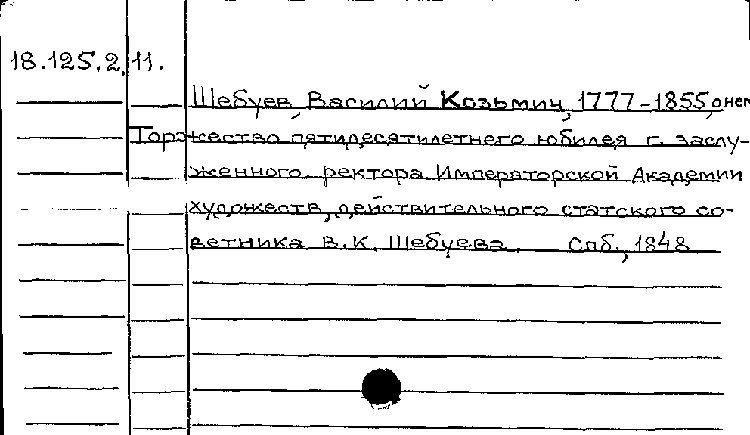 18.125.2.11.
Шебуев, Василий Козьмич, 1777-1855, о нем
Торжество пятидесятилетнего юбилея г. заслу-
женного ректора Императорской Академии
художеств, действительного статского со-
ветника В.К. Шебуева. Спб., 1848